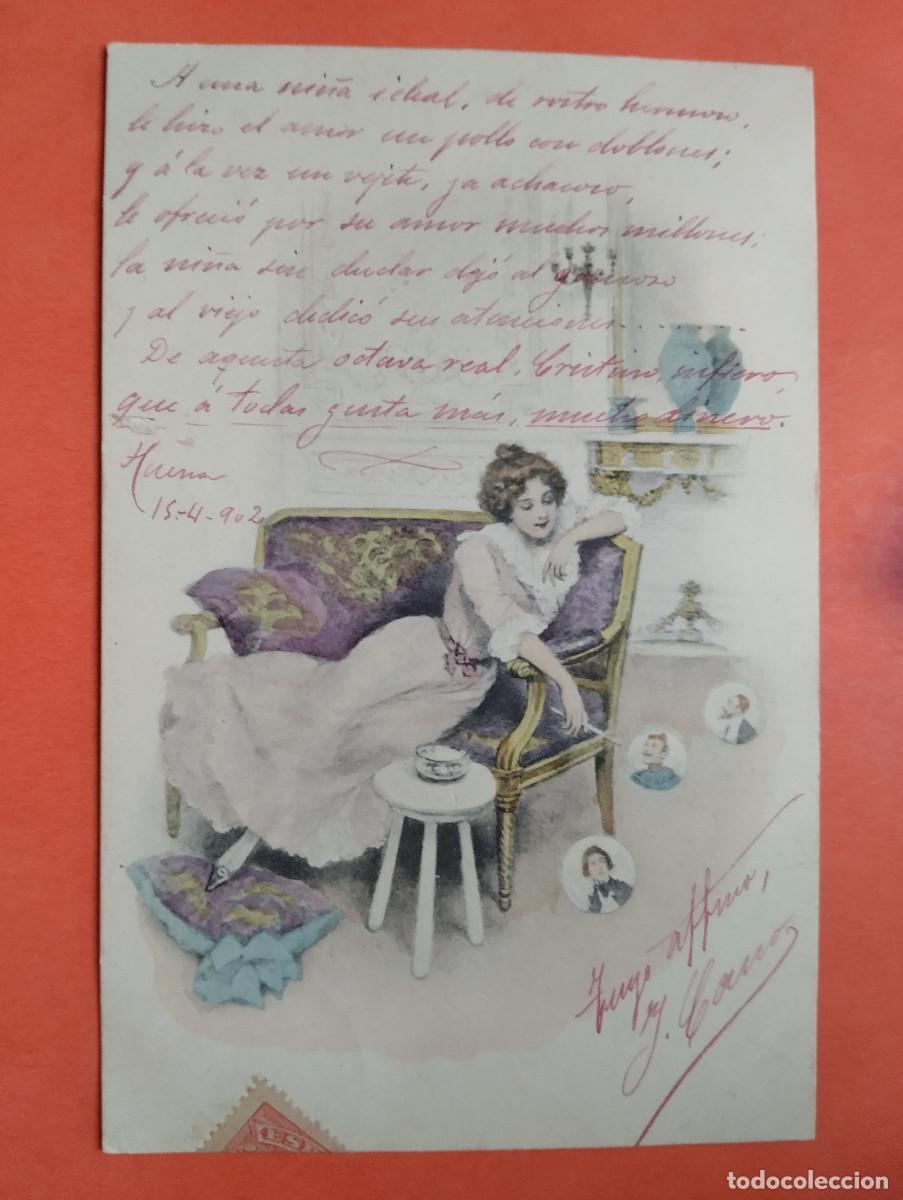 A una niña ideal, de rostro hermoso,
le hizo el amor un pollo con doblones;
y á la vez un vejete, ya achacoso,
le ofreció por su amor muchos millones;
la niña sin dudar dejó al
y al viejo dedicó sus atenciones......
De aquesta octava real, infiero,
que á todas gusta más, mucho dinero.
15-4-902
Tuyo affmo,
J. Cano
todocoleccion